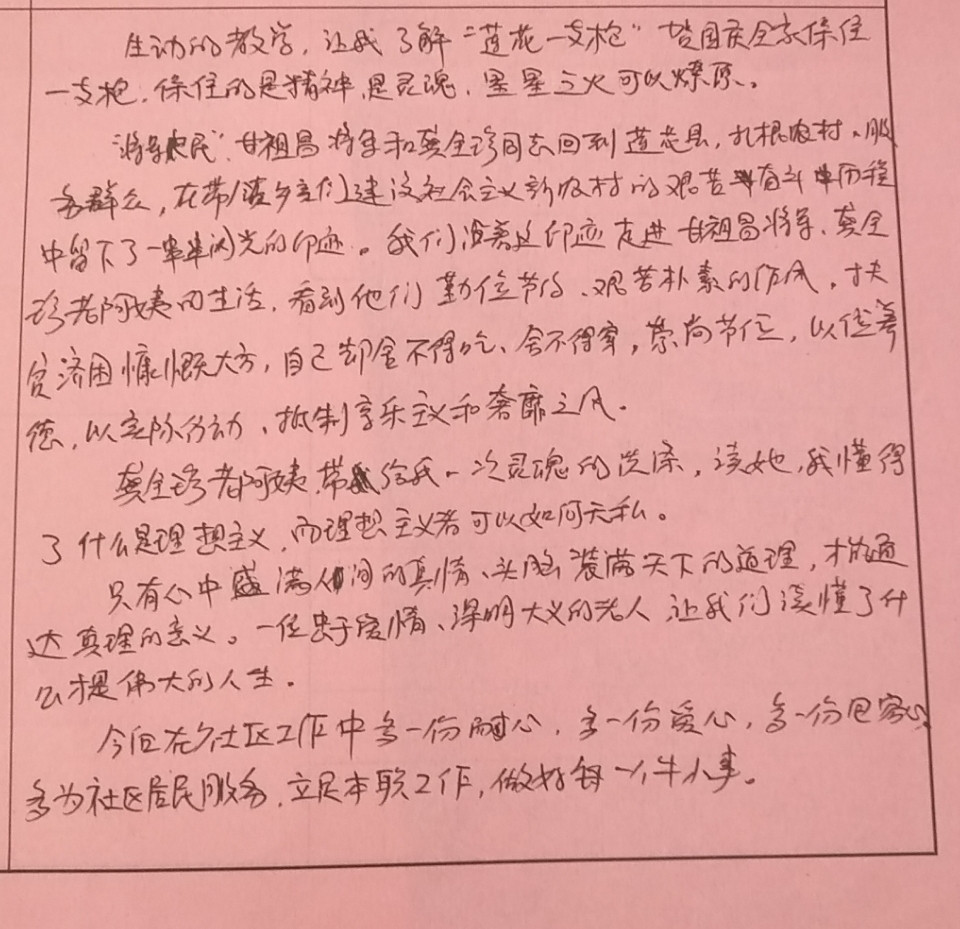 生动的教学，让我了解“莲花一支枪”曾国庆全家保住
一支枪，保住的是精神，是灵魂，星星之火可以燎原。
“将军农民”，甘祖昌将军和龚全珍同志回到莲花县，扎根农村、服
务群众，在带领乡亲们建设社会主义新农村的艰苦奋斗历程
中留下了一串串闪光的印迹。我们沿着这印迹走进甘祖昌将军、龚全
珍老阿姨的生活，看到他们勤俭节约、艰苦朴素的作风，扶
贫济困慷慨大方，自己却舍不得吃、舍不得穿，崇尚节俭，以俭养
德，以实际行动、抵制享乐主义和奢靡之风。
龚全珍老阿姨，带给我一次灵魂的洗涤，读她，我懂得
了什么是理想主义，而理想主义者可以如何无私。
只有心中盛满人间的真情、头脑装满天下的道理，才能通
达真理的意义。一位忠于爱情、深明大义的老人，让我们读懂了什
么才是伟大的人生。
今后在社区工作中多一份耐心，多一份爱心，多一份
多为社区居民服务，立足本职工作，做好每一件小事。